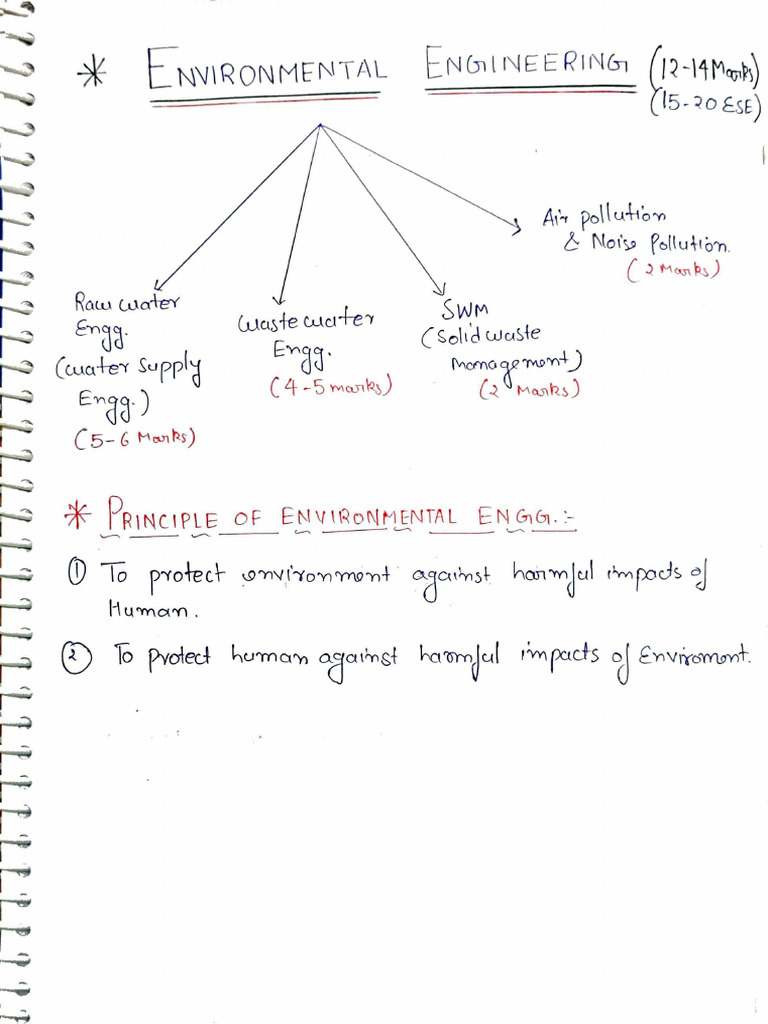 * ENVIRONMENTAL ENGINEERING (12-14 Marks)
(15-20 ESE)
Air pollution
& Noise Pollution.
(2 Marks)
Raw water
Engg.
(water supply
Engg.)
(5-6 Marks)
Waste water
Engg.
(4-5 marks)
SWM
(Solid waste
management)
(2 Marks)
* PRINCIPLE OF ENVIRONMENTAL ENGG.:-
① To protect environment against harmful impacts of
Human.
② To protect human against harmful impacts of Enviroment.